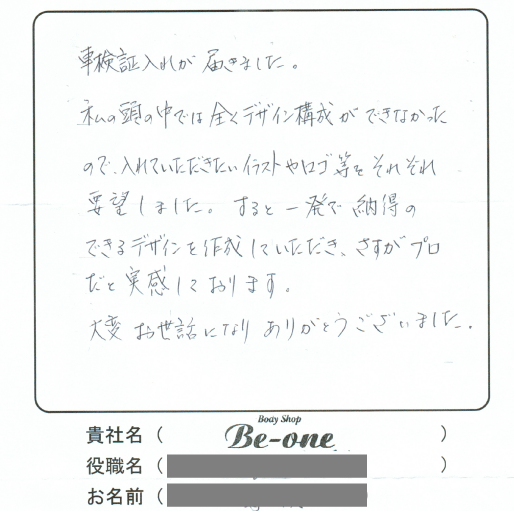 車検証入れが届きました。
私の頭の中では全くデザイン構成ができなかった
ので、入れていただきたいイラストやロゴ等をそれぞれ
要望しました。すると一発で納得の
できるデザインを作成していただき、さすがプロ
だと実感しております。
大変お世話になりありがとうございました。
貴社名（ Body Shop Be-one ）
役職名（ ）
お名前（ ）